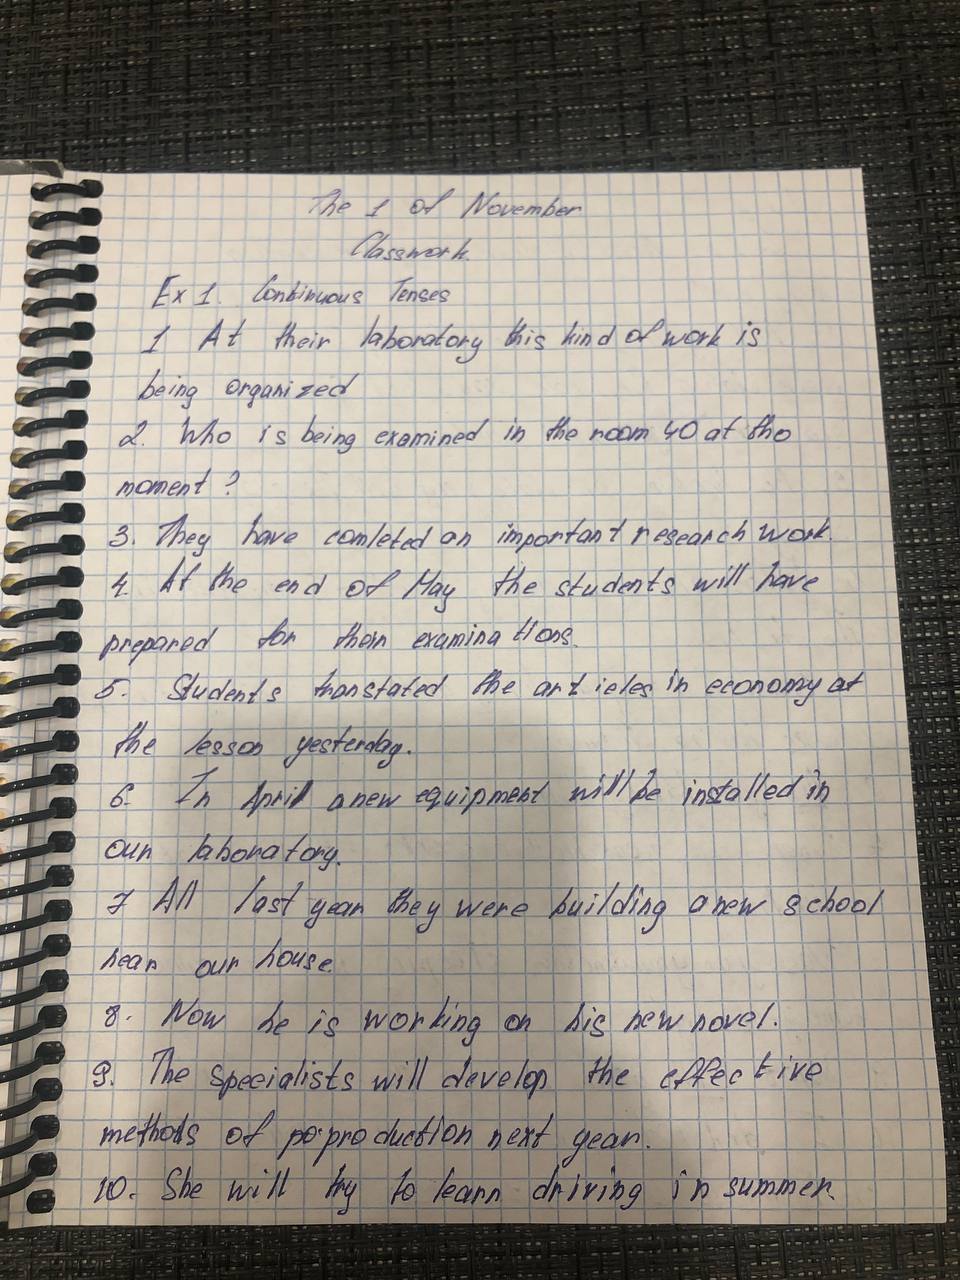 The 1 of November
Classwork.
Ex 1. Continuous Tenses
1 At their laboratory this kind of work is
being organized
2. Who is being examined in the room 40 at the
moment?
3. They have comleted an important research work.
4. At the end of May the students will have
prepared for them examinations.
5. Students translated the articles in economy at
the lesson yesterday.
6. In April a new equipment will be installed in
our laboratory.
7 All last year they were building a new school
near our house.
8. Now he is working on his new novel.
9. The specialists will develop the effective
methods of production next year.
10. She will try to learn driving in summer.